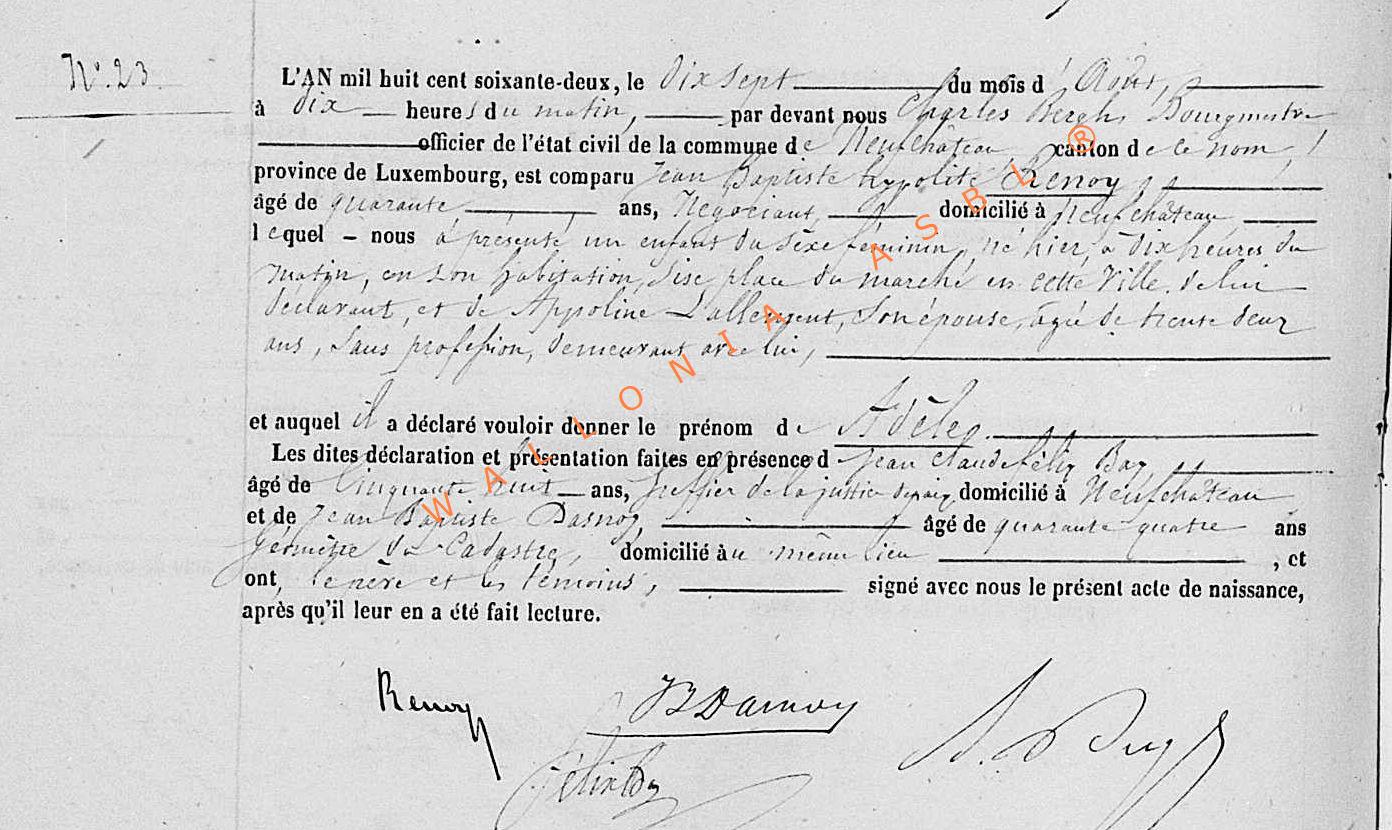 N° 23
L'AN mil huit cent soixante-deux, le Dix sept du mois d'Août,
à Dix heures du matin, par devant nous Charles Bergh, Bourgmestre
officier de l'état civil de la commune de Neufchâteau, canton de ce nom,
province de Luxembourg, est comparu Jean Baptiste hypolite Renoy,
âgé de quarante ans, Négociant, domicilié à Neufchâteau
lequel nous a présenté un enfant du sexe féminin, né hier, à dix heures du
matin, en son habitation, sise place du marché en cette Ville, de lui
déclarant, et de Appoline Lallement, son épouse, agée de trente deux
ans, sans profession, demeurant avec lui,
et auquel il a déclaré vouloir donner le prénom de Adèle.
Les dites déclaration et présentation faites en présence d Jean Claude félix
âgé de Cinquante neuf ans, greffier de la justice de paix, domicilié à Neufchâteau
et de Jean Baptiste Dasnoy, âgé de quarante quatre ans
géomètre du Cadastre, domicilié au même lieu , et
ont, le père et les témoins, signé avec nous le présent acte de naissance,
après qu'il leur en a été fait lecture.
Renoy
JBDasnoy
WALLONIA ASBL ®